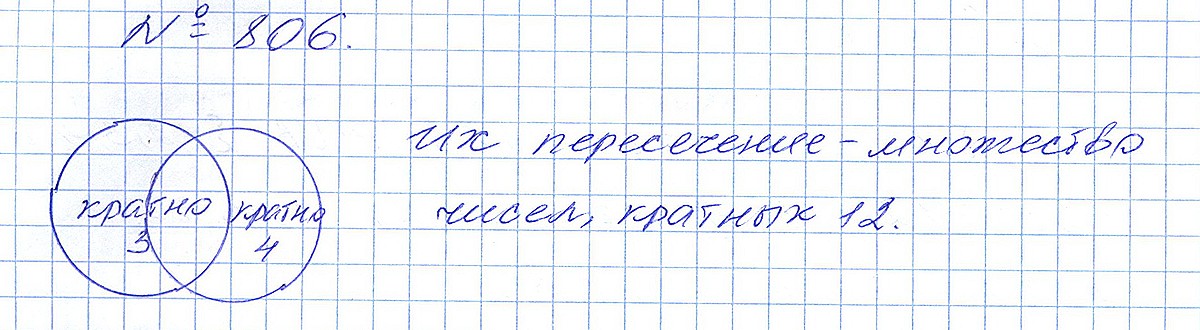 № 806.
Их пересечение - множество
кратно кратно
чисел, кратных 12.
3 4